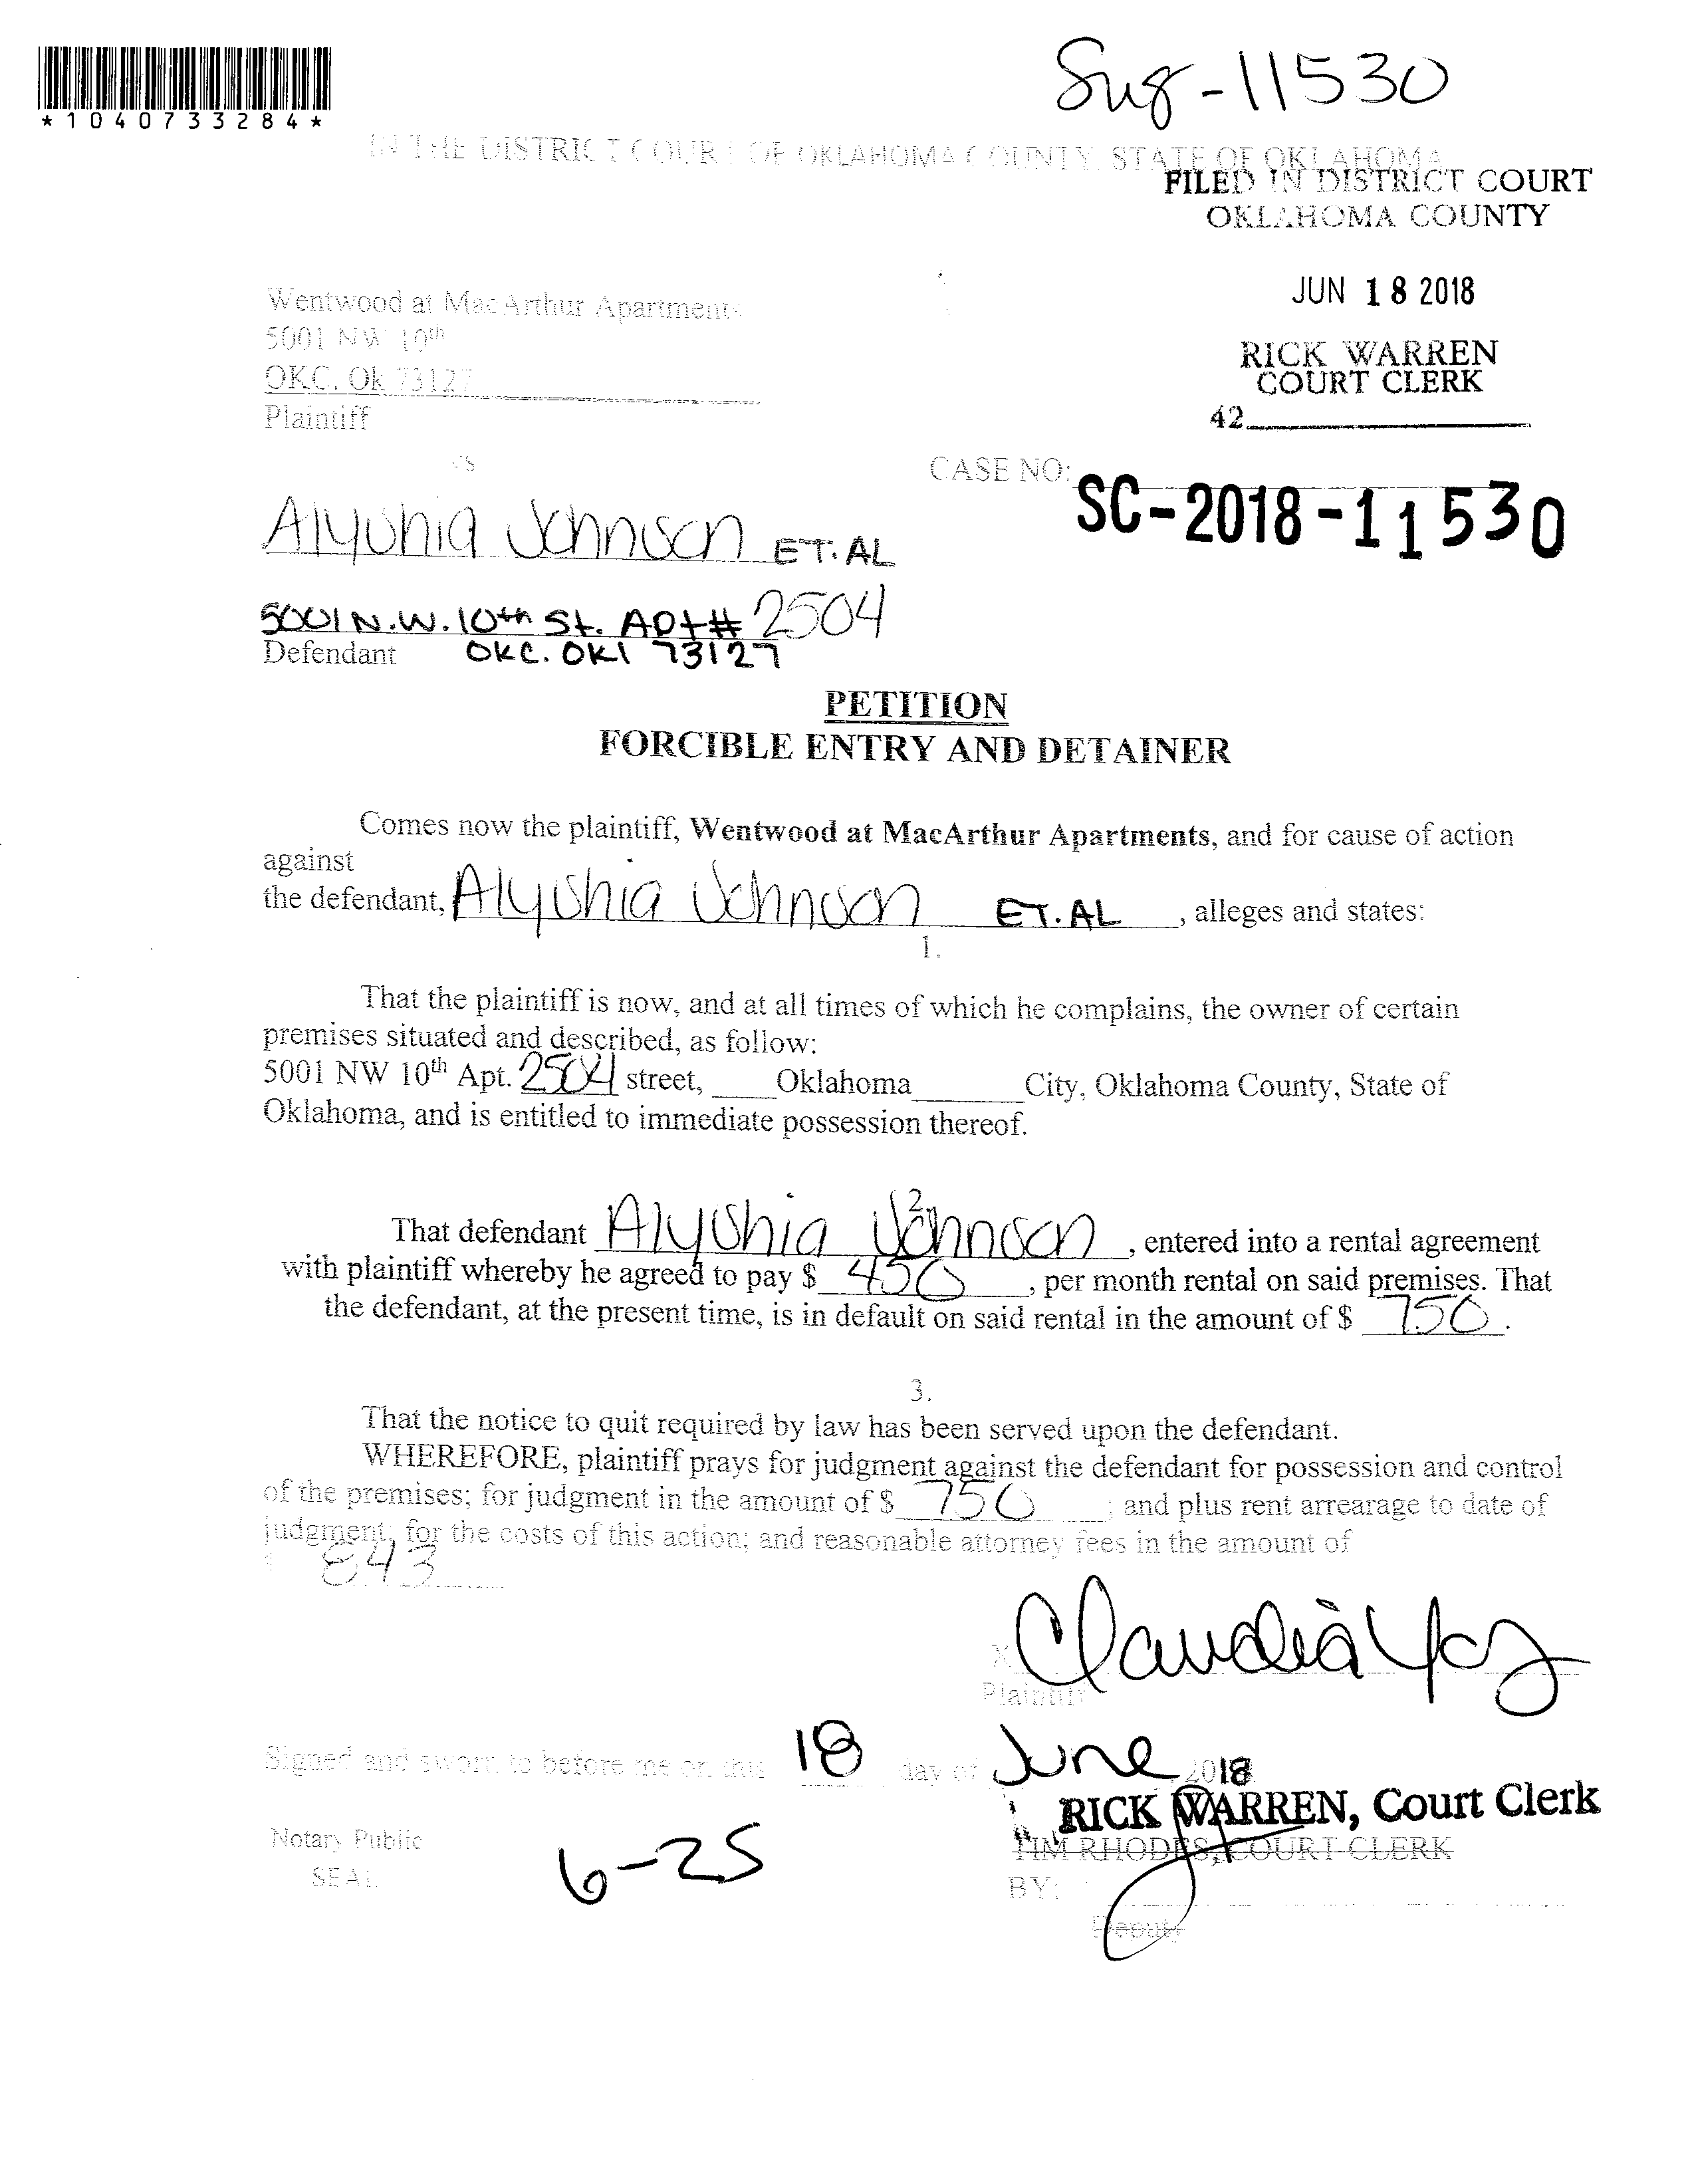 *1040733284*
-11530
IN THE DISTRICT COURT OF OKLAHOMA COUNTY, STATE OF OKLAHOMA
FILED IN DISTRICT COURT
OKLAHOMA COUNTY
JUN 18 2018
RICK WARREN
COURT CLERK
42
Wentwood at MacArthur Apartments
5001 NW 10th
OKC, Ok 73127
Plaintiff
vs
CASE NO: SC-2018-11530
Alyshia Johnson ET. AL
5001 N.W. 10th St. Apt# 2504
Defendant OKC. OKl 73127
PETITION
FORCIBLE ENTRY AND DETAINER
Comes now the plaintiff, Wentwood at MacArthur Apartments, and for cause of action
against
the defendant, Alyshia Johnson ET. AL, alleges and states:
1.
That the plaintiff is now, and at all times of which he complains, the owner of certain
premises situated and described, as follow:
5001 NW 10th Apt. 2504 street, ____Oklahoma_______City, Oklahoma County, State of
Oklahoma, and is entitled to immediate possession thereof.
2.
That defendant Alyshia Johnson, entered into a rental agreement
with plaintiff whereby he agreed to pay $ 450, per month rental on said premises. That
the defendant, at the present time, is in default on said rental in the amount of $ 750.
3.
That the notice to quit required by law has been served upon the defendant.
WHEREFORE, plaintiff prays for judgment against the defendant for possession and control
of the premises; for judgment in the amount of $ 750; and plus rent arrearage to date of
judgment; for the costs of this action; and reasonable attorney fees in the amount of
$ 843
X Claudia
Plaintiff
Signed and sworn to before me on this 18 day of June, 2018
RICK WARREN, Court Clerk
TIM RHODES, COURT CLERK
Notary Public
SEAL
6-25
BY:
Deputy